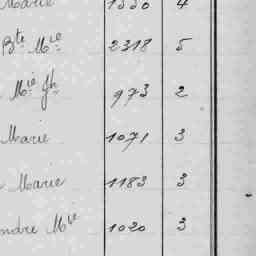 Marie 1330 4
Bte Mie 2318 5
Mie Jh 973 2
Marie 1071 3
Marie 1183 3
ndre Mie 1020 3